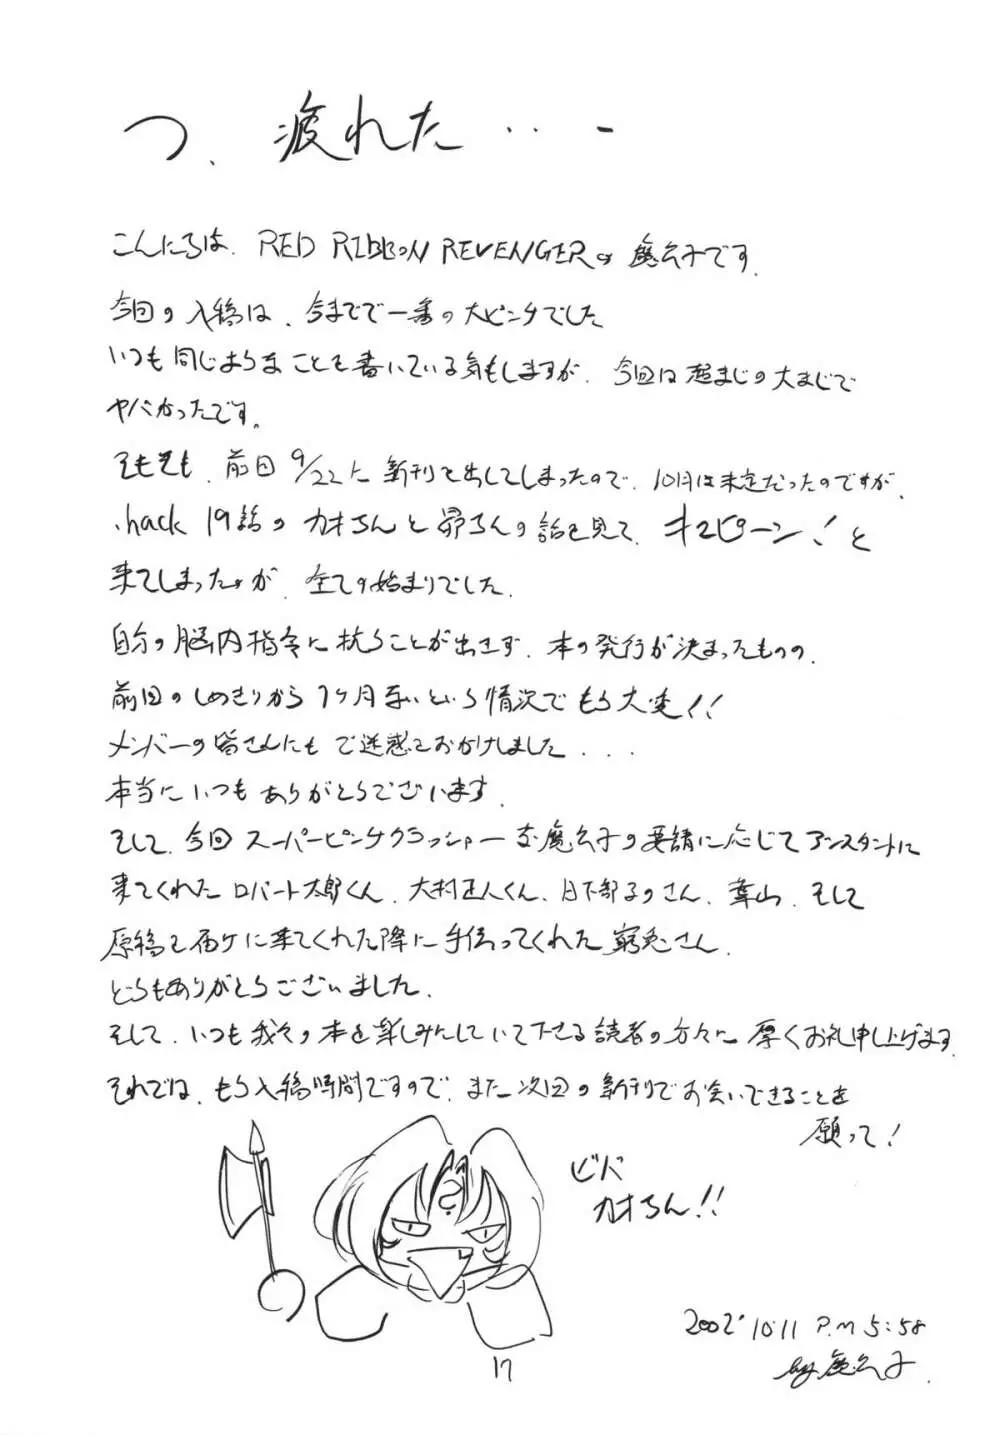 つ、疲れた・・・ー
こんにちは、RED RIBBON REVENGERの魔公子です。
今回の入稿は、今までで一番の大ピンチでした
いつも同じようなことを書いている気もしますが、今回は超まじの大まじで
ヤバかったです。
そもそも、前回9/22に新刊を出してしまったので、10月は未定だったのですが、
.hack 19話のカオちんと昴ちんの話を見て、キュピーン!と
来てしまったのが、全ての始まりでした。
自分の脳内指令に抗うことが出きず、本の発行が決まったものの、
前回のしめきりから1ケ月無いという情況でもう大変!!
メンバーの皆さんにもご迷惑をおかけしました...
本当にいつもありがとうございます。
そして、今回スーパーピンチクラッシャーな魔公子の要請に応じてアシスタントに
来てくれたロバート太郎くん、大村正人くん、日下部るのさん、葉山、そして
原稿を届けに来てくれた際に手伝ってくれた窮兎さん。
どうもありがとうございました。
そして、いつも我々の本を楽しみにしていて下さる読者の方々に厚くお礼申し上げます。
それでは、もう入稿時間ですので、また次回の新刊でお会いできることを
願って!
ビバ
カオちん!!
2002' 10.11 P.M 5:58
by 魔公子.
17